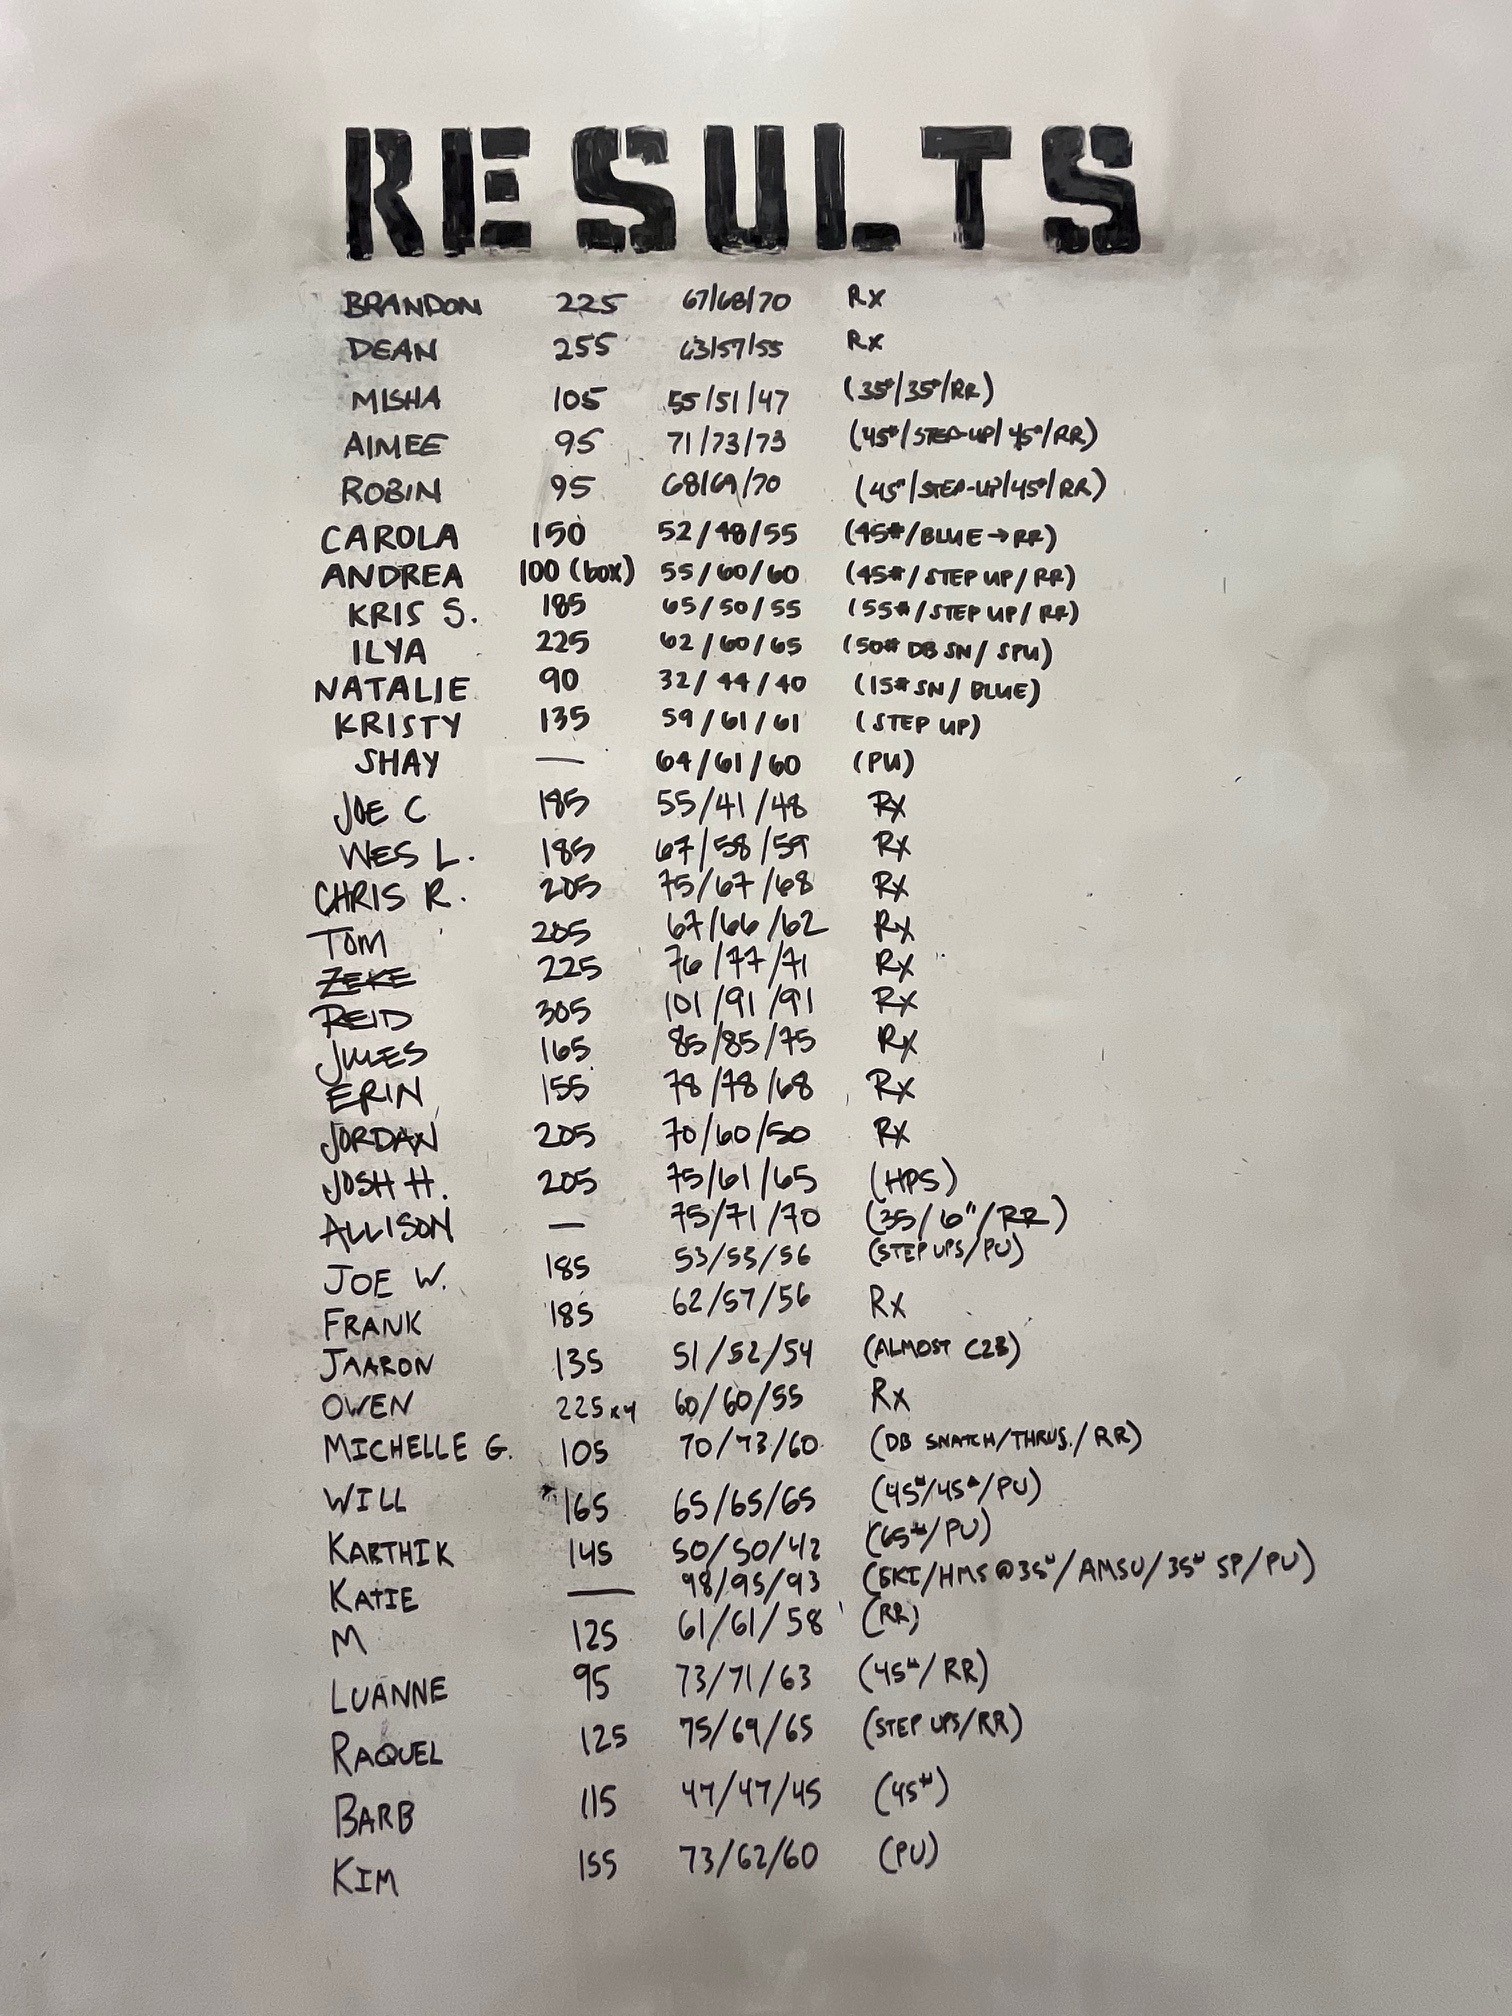 RESULTS
BRANDON 225 67/68/70 Rx
DEAN 255 63/57/55 Rx
MISHA 105 55/51/47 (35#/35#/RR)
AIMEE 95 71/73/73 (45#/STEP-UP/45#/RR)
ROBIN 95 68/69/70 (45#/STEP-UP/45#/RR)
CAROLA 150 52/48/55 (45#/BLUE→RR)
ANDREA 100 (box) 55/60/60 (45#/STEP UP/RR)
KRIS S. 185 65/50/55 (55#/STEP UP/RR)
ILYA 225 62/60/65 (50# DB SN/SPU)
NATALIE 90 32/44/40 (15# SN/BLUE)
KRISTY 135 59/61/61 (STEP UP)
SHAY — 64/61/60 (PU)
JOE C 185 55/41/48 Rx
WES L. 185 67/58/59 Rx
CHRIS R. 205 75/67/68 Rx
TOM 205 67/66/62 Rx
ZEKE 225 76/77/71 Rx
REID 305 101/91/91 Rx
JULES 165 85/85/75 Rx
ERIN 155 78/78/68 Rx
JORDAN 205 70/60/50 Rx
JOSH H. 205 75/61/65 (HPS)
ALLISON — 75/71/70 (35/6"/RR)
JOE W. 185 53/53/56 (STEP UPS/PU)
FRANK 185 62/57/56 Rx
JAARON 135 51/52/54 (ALMOST C2B)
OWEN 225x4 60/60/55 Rx
MICHELLE G. 105 70/73/60 (DB SNATCH/THRUS./RR)
WILL 165 65/65/65 (45#/45#/PU)
KARTHIK 145 50/50/42 (65#/PU)
KATIE — 98/95/93 (SKI/HMS@35#/AMSU/35# SP/PU)
M 125 61/61/58 (RR)
LUANNE 95 73/71/63 (45#/RR)
RAQUEL 125 75/69/65 (STEP UPS/RR)
BARB 115 47/47/45 (45#)
KIM 155 73/62/60 (PU)